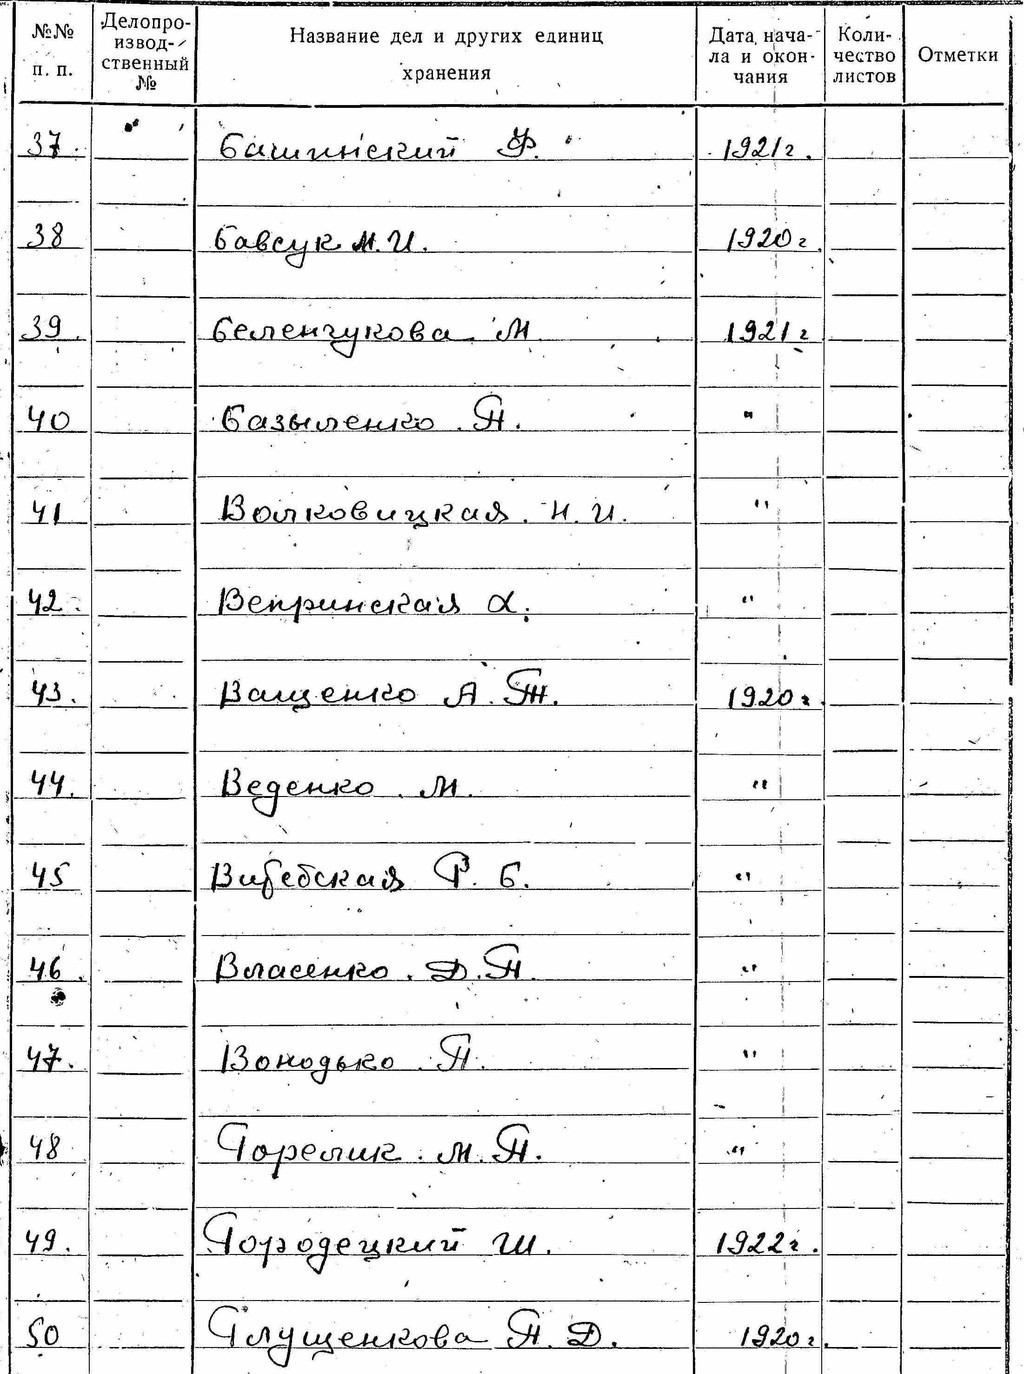 №№ п. п. Делопроизводственный № Название дел и других единиц хранения Дата начала и окончания Количество листов Отметки
37. Башинский Ф. 1921 г.
38 Бавсук М. И. 1920 г.
39. Беленчукова М. 1921 г
40 Базыленко П. "
41 Волковицкая Н. И. "
42. Вепринская А. "
43. Ващенко А. Т. 1920 г.
44. Веденко М. "
45 Витебская Р. Б. "
46. Власенко Д. П. "
47. Вонодько П. "
48 Горелик М. П. "
49. Городецкий Ш. 1922 г.
50 Глущенкова П. Д. 1920 г.